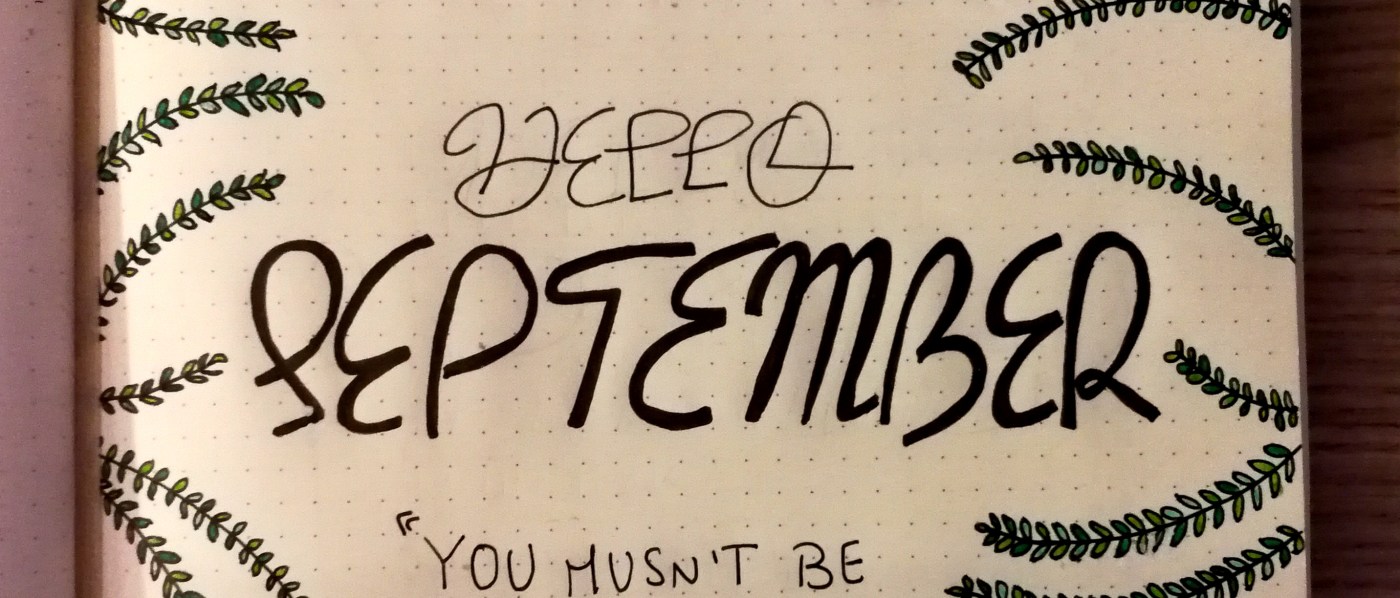 HELLO
SEPTEMBER
"YOU MUSN'T BE